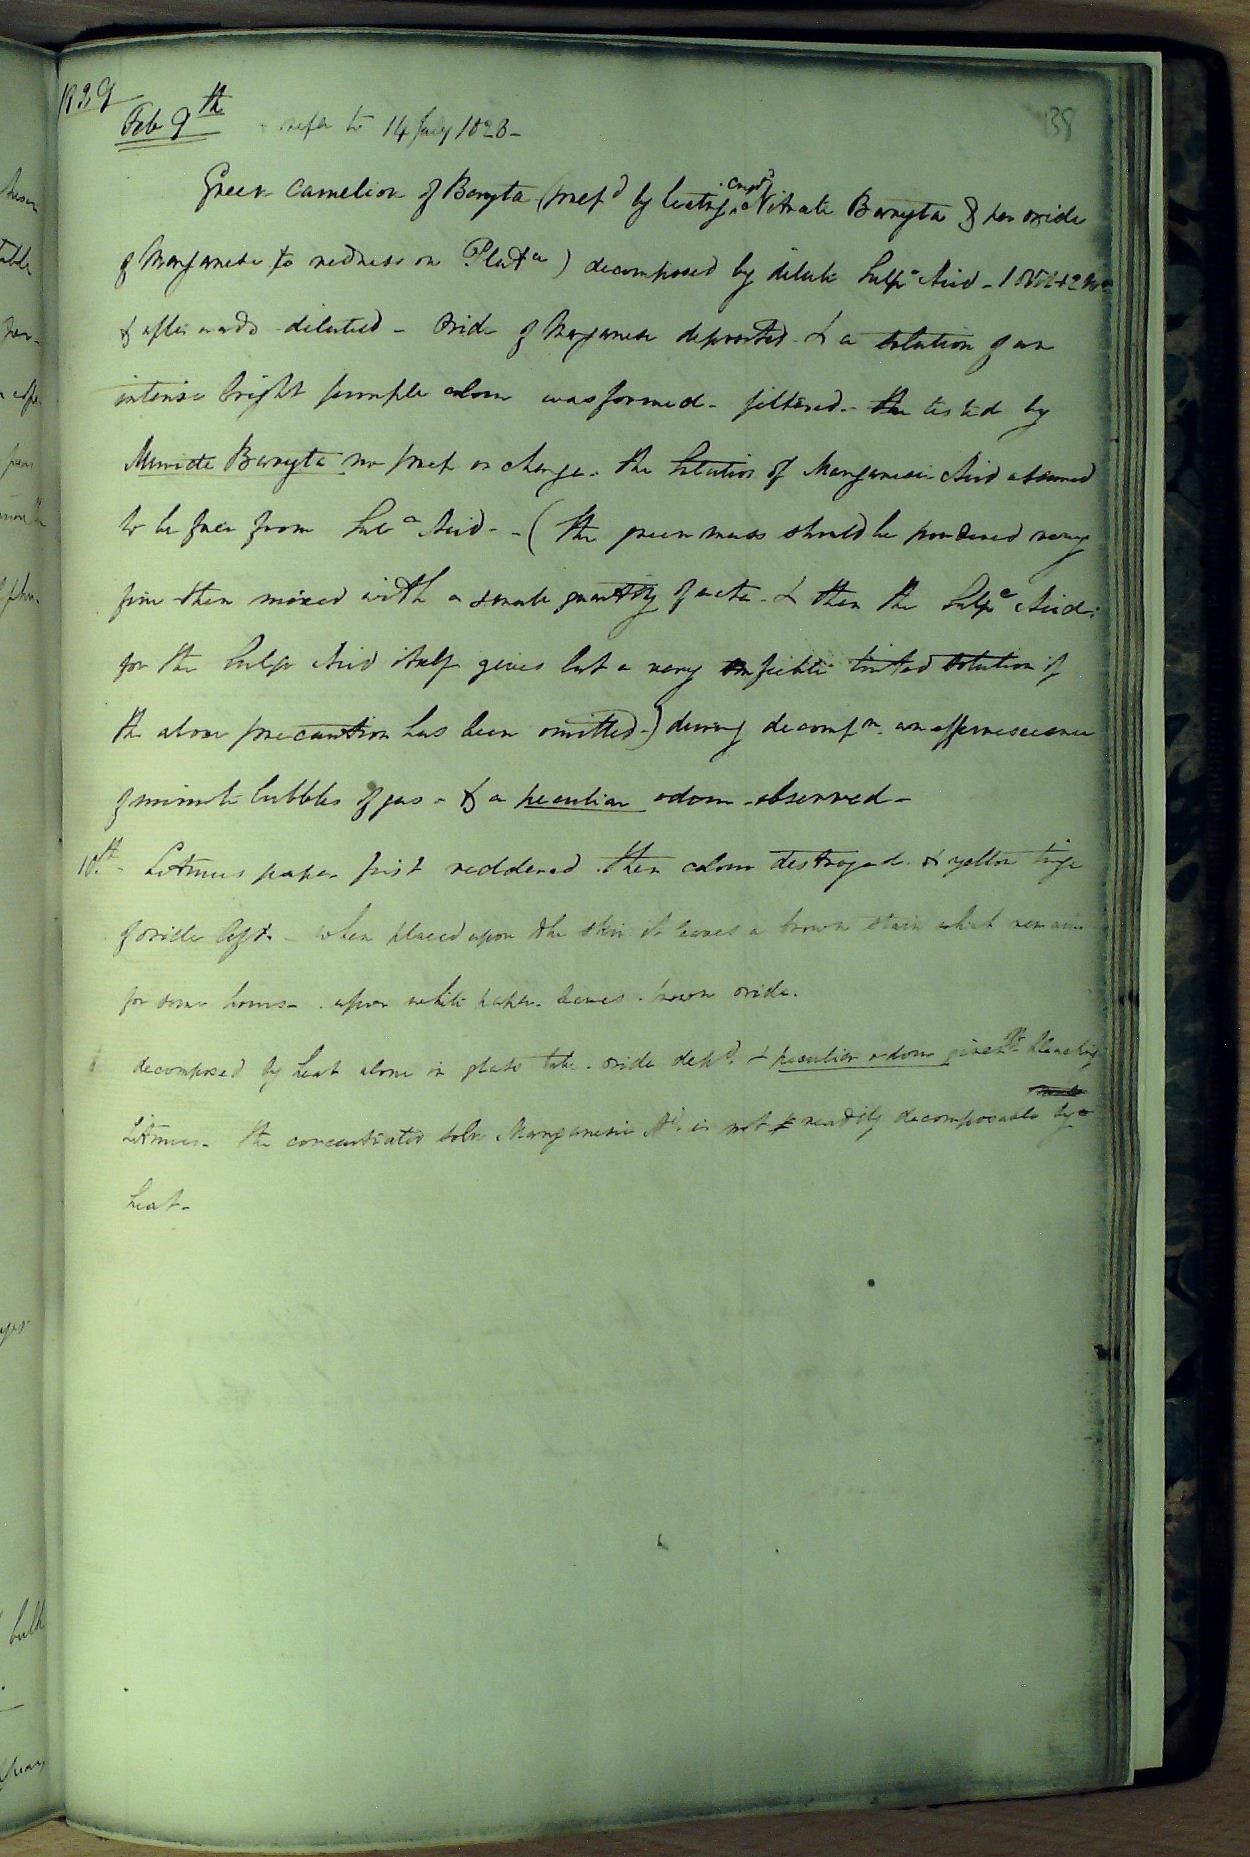 1829
138
Feb 9th - refer to 14 July 1828 -
Green Camelion of Baryta (prepd by heatg Nitrate Baryta & per oxide
of Manganese to redness on Plata) decomposed by dilute Sulpc Acid - 1 OV +2
& afterwards diluted - Oxide of Manganese deposited & a solution of an
intense bright purple colour was formed - filtered - tested by
Muriate Baryta no precp or change. the Solution of Manganesic Acid assumed
to be free from Sulc Acid - - (the green mass should be powdered very
fine then mixed with a small quantity of water & then the Sulpc Acid:
for the Sulpc Acid itself gives but a very feeble tinted solution if
the above precaution has been omitted -) during decompn. an effervescence
of minute bubbles of gas - & a peculiar odour observed -
10th - Litmus paper first reddened then colour destroyed & yellow tinge
of oxide left - when placed upon the skin it leaves a brown stain which remains
for some hours - upon white paper leaves brown oxide.
decomposed by heat alone in glass tube. oxide depd. & peculiar odour given off bleaching
Litmus - the concentrated soln Manganesic Ad. is not readily decomposable by
heat -